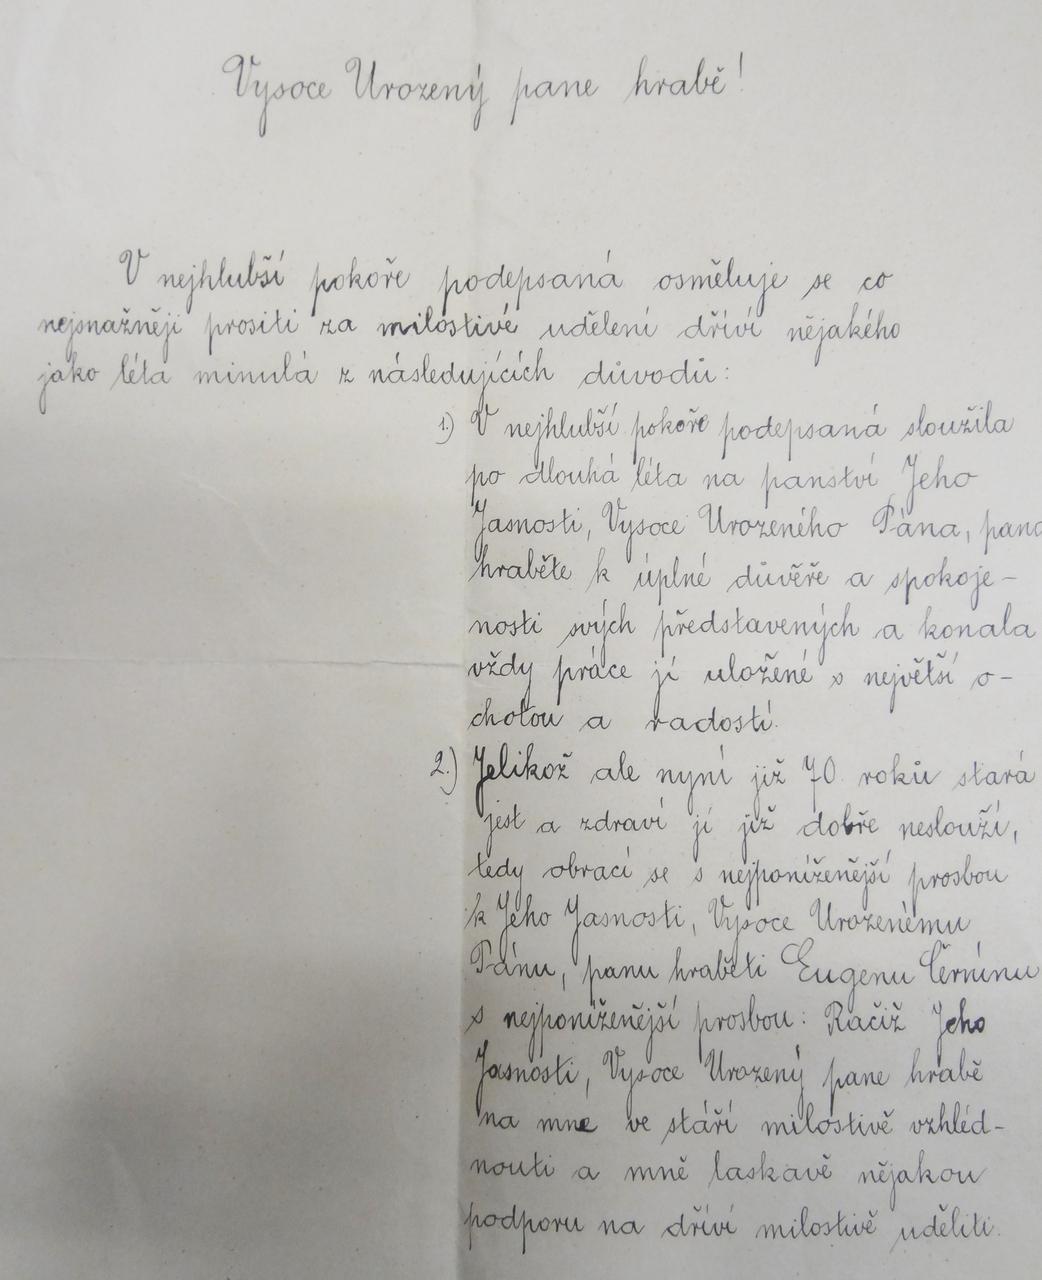 Vysoce Urozený pane hrabě!
V nejhlubší pokoře podepsaná osměluje se co
nejsnažněji prositi za milostivé udělení dříví nějakého
jako léta minulá z následujících důvodů:
1.) V nejhlubší pokoře podepsaná sloužila
po dlouhá léta na panství Jeho
Jasnosti, Vysoce Urozeného Pána, pana
hraběte k úplné důvěře a spokoje-
nosti svých představených a konala
vždy práce jí uložené s největší o-
chotou a radostí.
2.) Jelikož ale nyní již 70 roků stará
jest a zdraví jí již dobře neslouží,
tedy obrací se s nejponíženější prosbou
k Jeho Jasnosti, Vysoce Urozenému
Pánu, panu hraběti Eugenu Černínu
s nejponíženější prosbou: Račiž Jeho
Jasnosti, Vysoce Urozený pane hrabě
na mne ve stáří milostivě vzhléd-
nouti a mně laskavě nějakou
podporu na dříví milostivě uděliti.